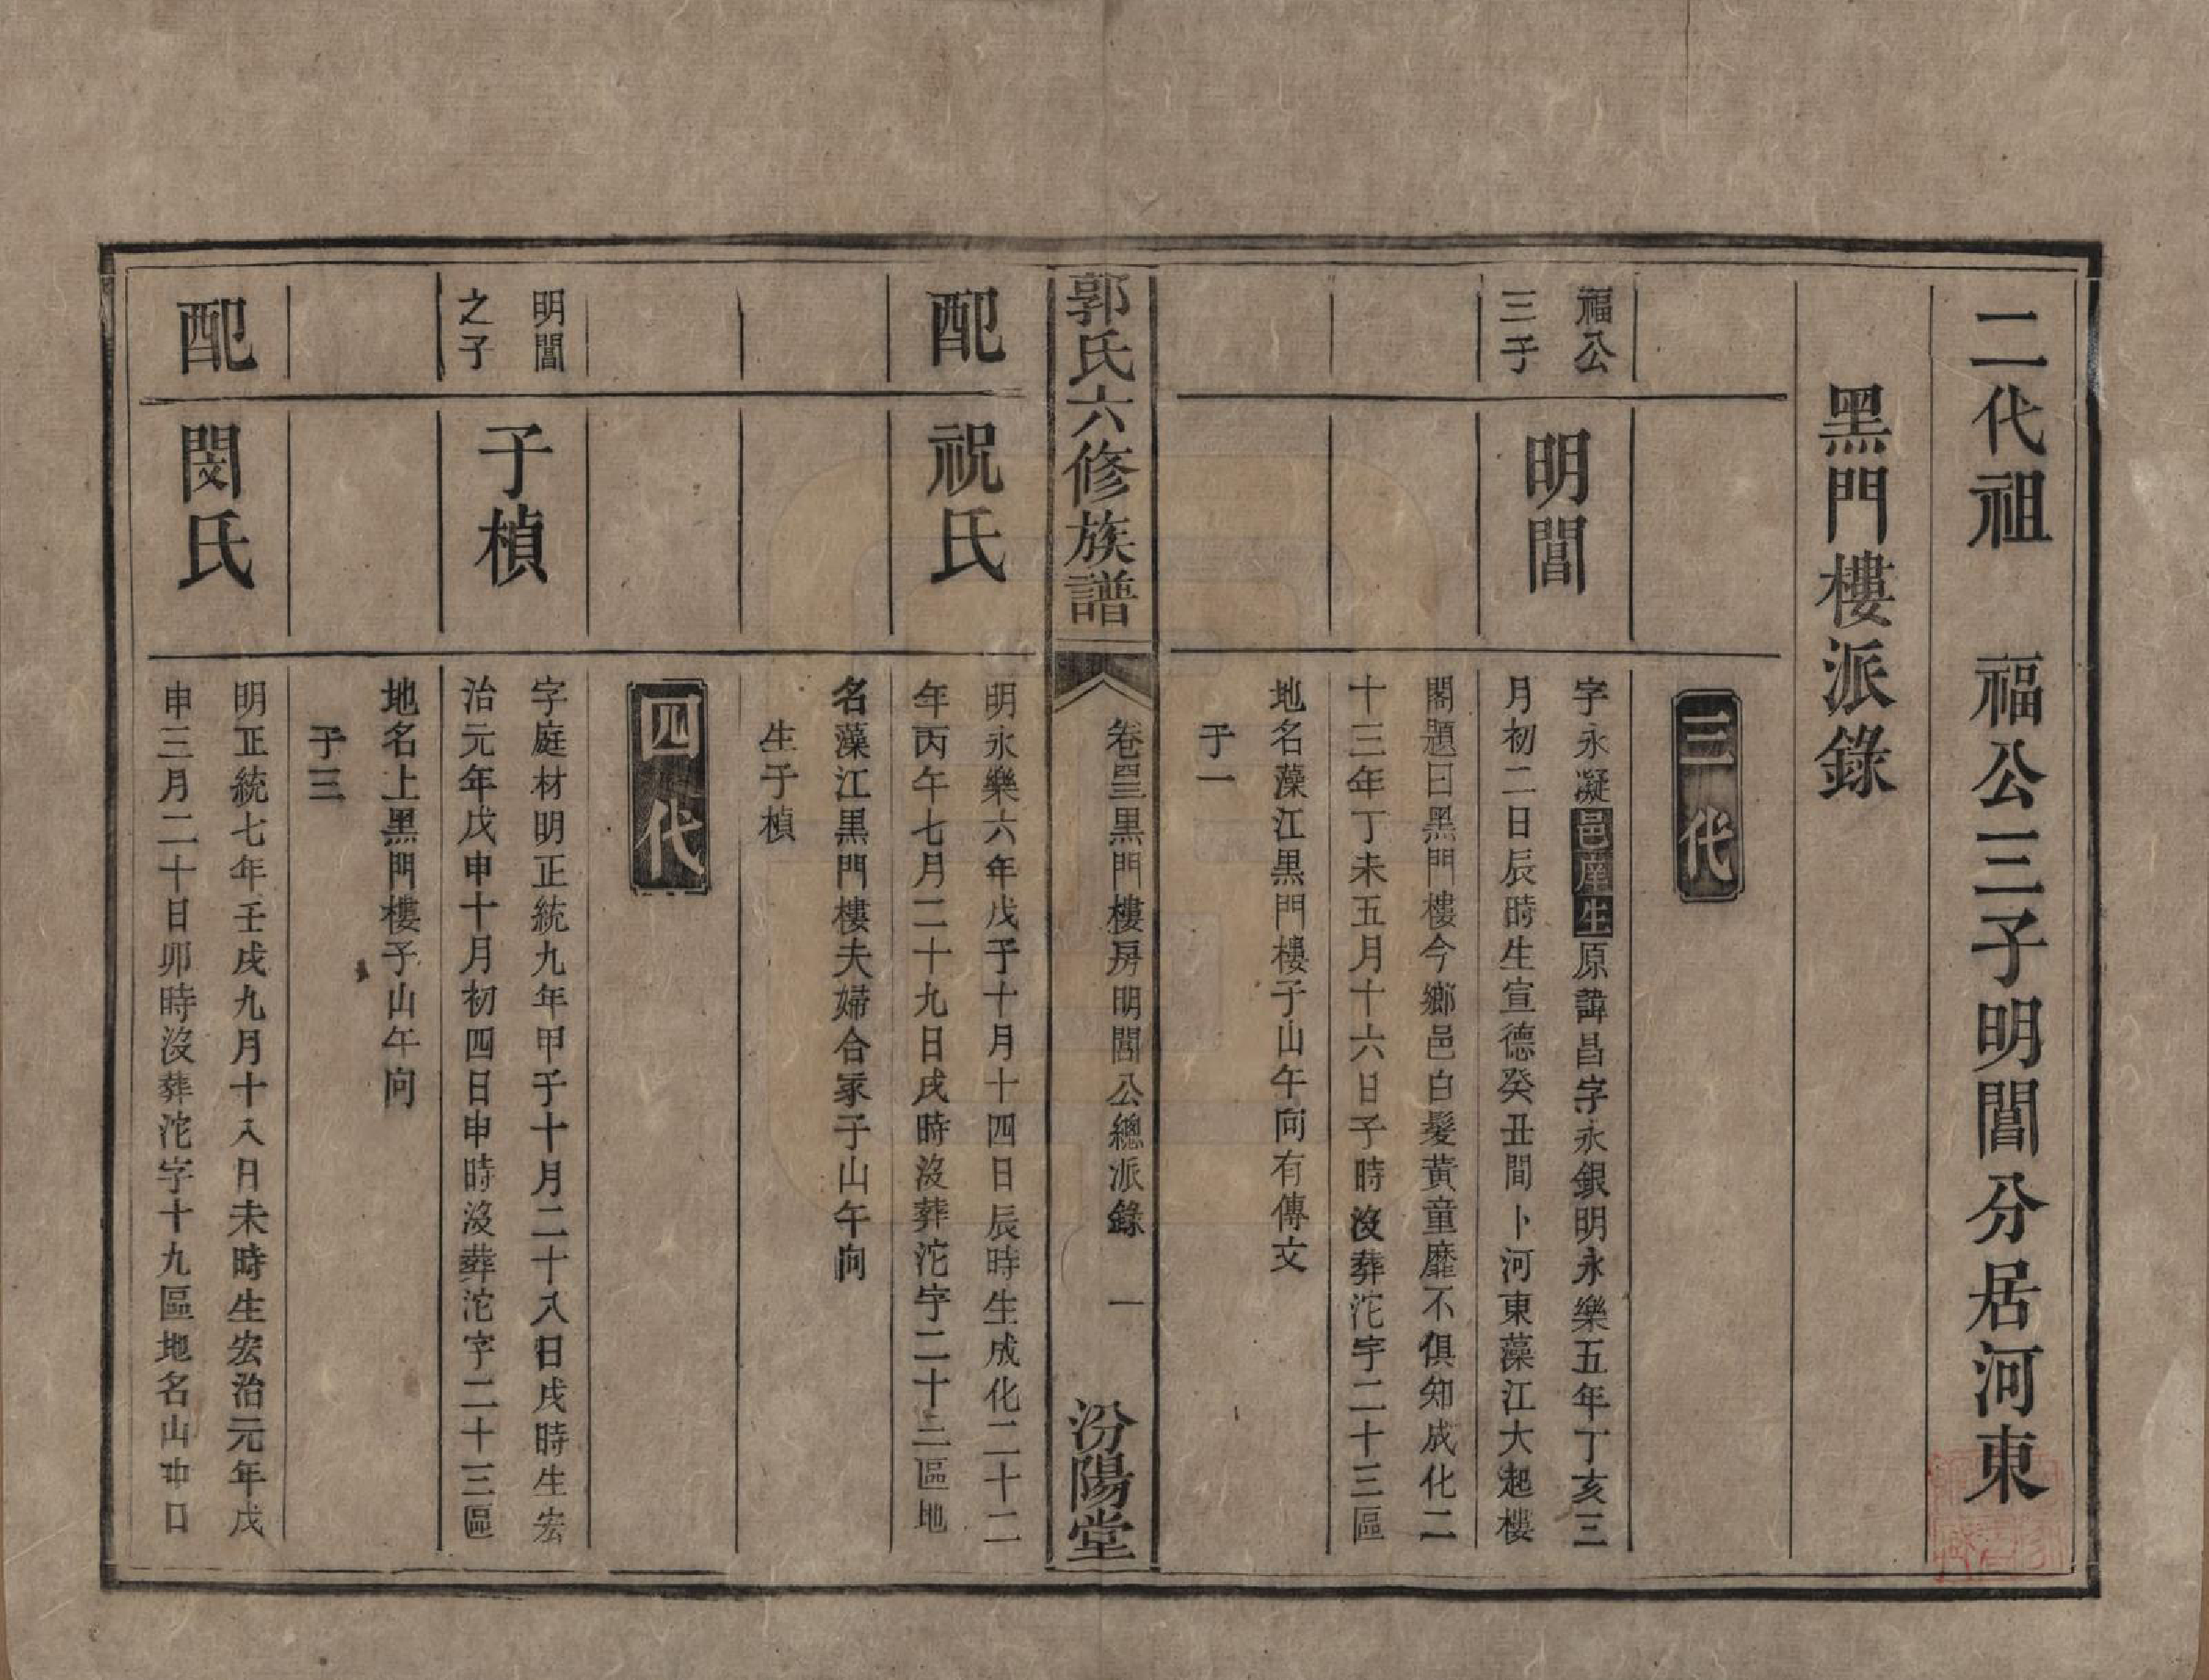 二代祖　福公三子明閶分居河東
黑門樓派錄
三代
福公
三子
明閶
字永凝邑庠生原諱昌字永銀明永樂五年丁亥三
月初二日辰時生宣德癸丑間卜河東藻江大起樓
閣題曰黑門樓今鄉邑白髮黃童靡不俱知成化二
十三年丁未五月十六日子時沒葬沱字二十三區
地名藻江黑門樓子山午向有傳文
子一
郭氏六修族譜
卷四三黑門樓房明閶公總派錄　一
汾陽堂
配
祝氏
明永樂六年戊子十月十四日辰時生成化二十二
年丙午七月二十九日戌時沒葬沱字二十三區地
名藻江黑門樓夫婦合冢子山午向
生子楨
四代
明閶
之子
子楨
字庭材明正統九年甲子十月二十八日戌時生宏
治元年戊申十月初四日申時沒葬沱字二十三區
地名上黑門樓子山午向
子三
配
閔氏
明正統七年壬戌九月十八日未時生宏治元年戊
申三月二十日卯時沒葬沱字十九區地名山冲口